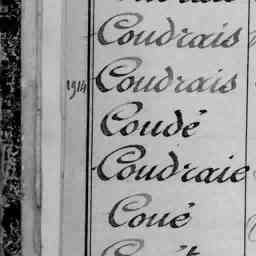 Coudrais
1914 Coudrais
Coudé
Coudraie
Coué